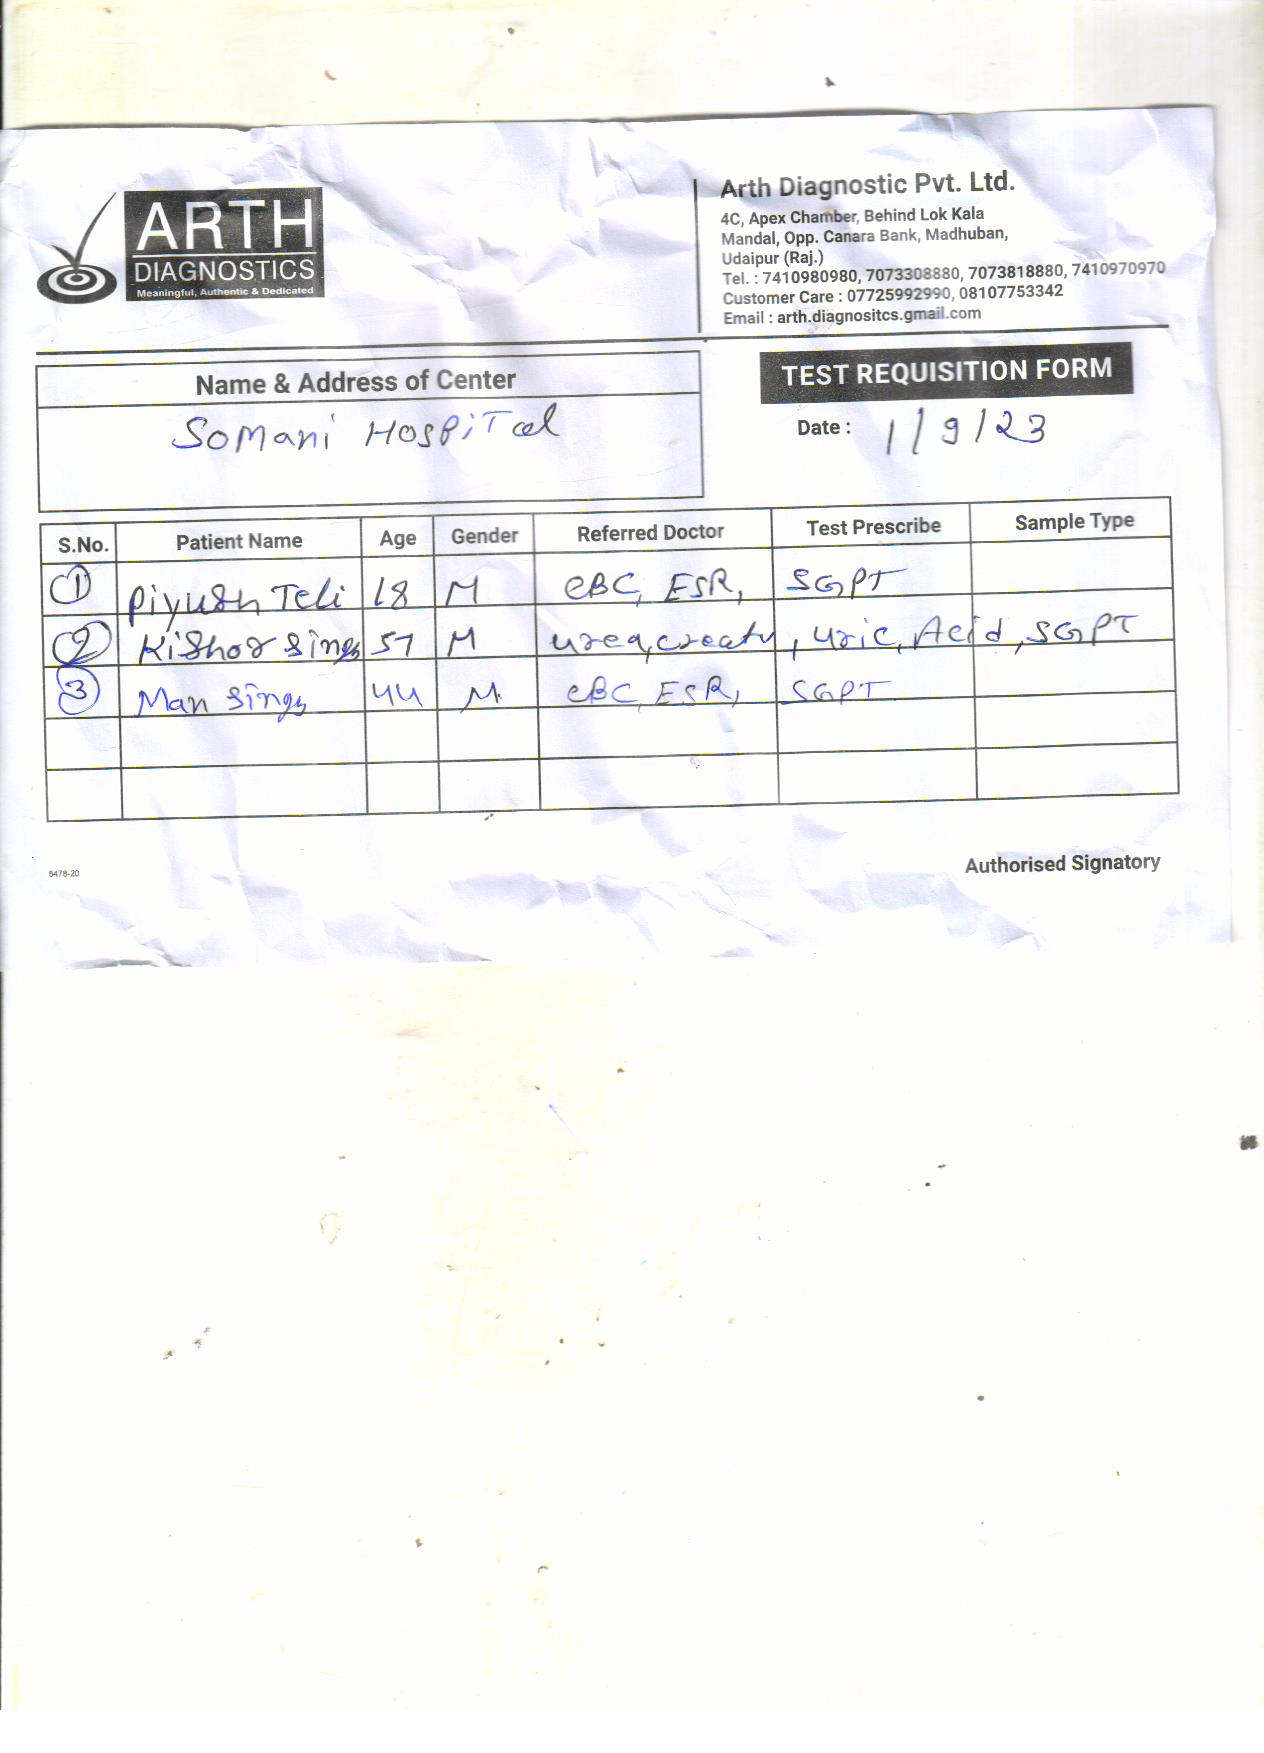 ARTH
DIAGNOSTICS
Meaningful, Authentic & Dedicated
Arth Diagnostic Pvt. Ltd.
4C, Apex Chamber, Behind Lok Kala
Mandal, Opp. Canara Bank, Madhuban,
Udaipur (Raj.)
Tel. : 7410980980, 7073308880, 7073818880, 7410970970
Customer Care : 07725992990, 08107753342
Email : arth.diagnositcs.gmail.com
Name & Address of Center
SoMani HospiTal
TEST REQUISITION FORM
Date : 1/9/23
S.No. Patient Name Age Gender Referred Doctor Test Prescribe Sample Type
1 Piyush Teli 18 M CBC, ESR, SGPT
2 Kishor Singh 57 M urea, creatn, Uric, Acid, SGPT
3 Man Singh 44 M. CBC, ESR, SGPT
Authorised Signatory
5478-20